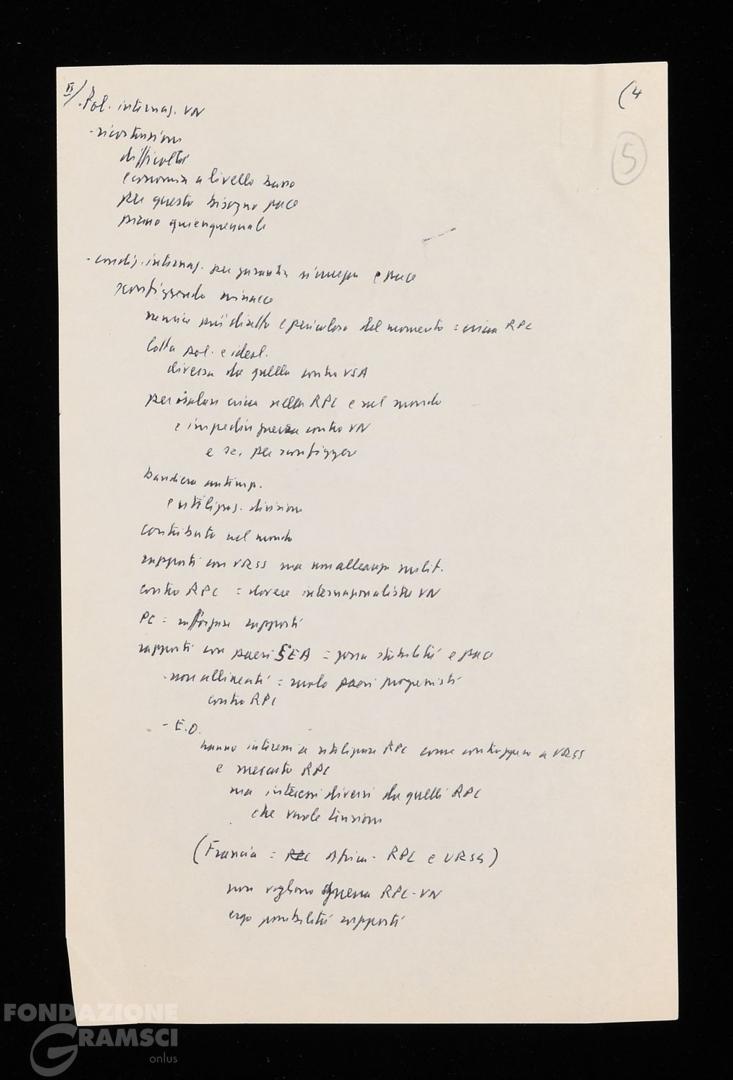 II/. Pol. internaz. VN
(4
5
- ricostruzione
difficoltà
economia a livello basso
per questo bisogno pace
piano quinquennale
- condiz. internaz. per garantire sicurezza e pace
sconfiggendo minacce
nemico più diretto e pericoloso del momento = cricca RPC
lotta pol. e ideol.
diversa da quella contro USA
per isolare cricca nella RPC e nel mondo
e impedire guerra contro VN
e se, per sconfiggere
bandiera antimp.
e utilizzaz. divisioni
contributo nel mondo
rapporti con URSS ma non alleanza milit.
contro RPC = dovere internazionalista VN
PC = rafforzare rapporti
rapporti con paesi SEA = zona stabilità e pace
- non allineati = ruolo paesi progressisti
contro RPC
- E.O.
hanno interessi a utilizzare RPC come contrappeso a URSS
e mercato RPC
ma interessi diversi da quelli RPC
che vuole tensioni
(Francia = RPC RPC e URSS)
non vogliono guerra RPC-VN
ergo possibilità rapporti
FONDAZIONE
GRAMSCI
onlus